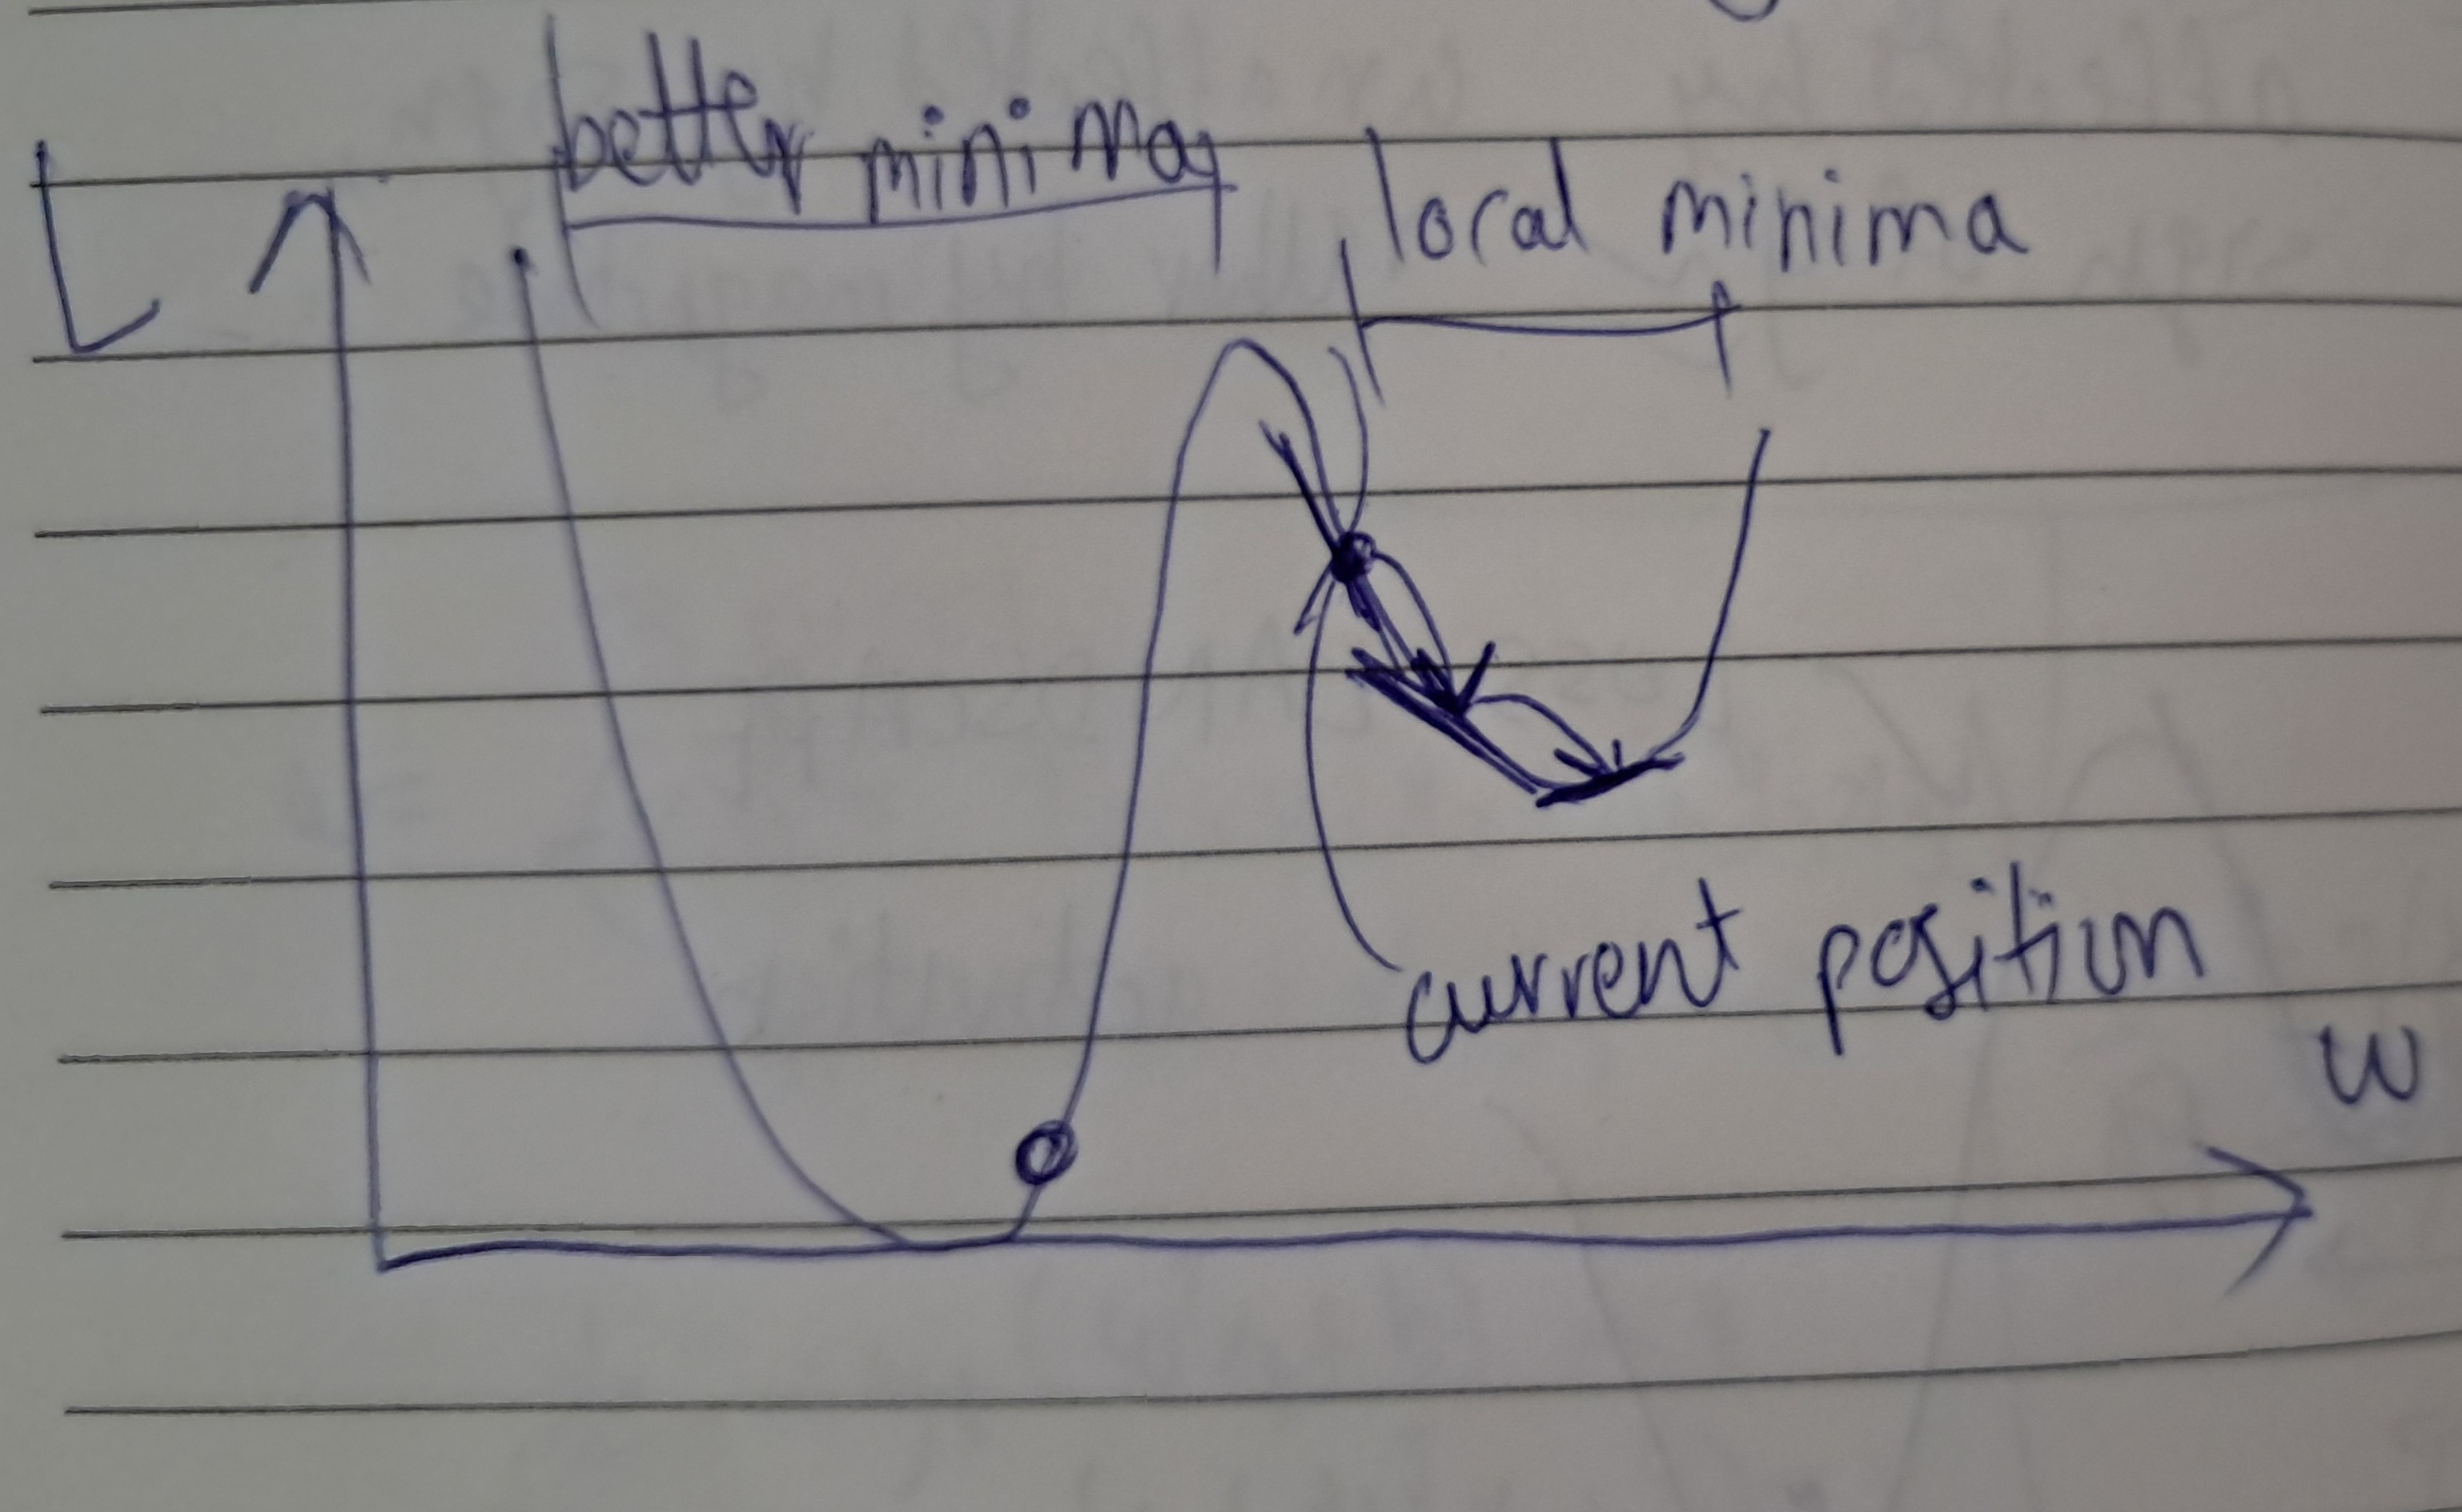 better minima
L
local minima
current position
w